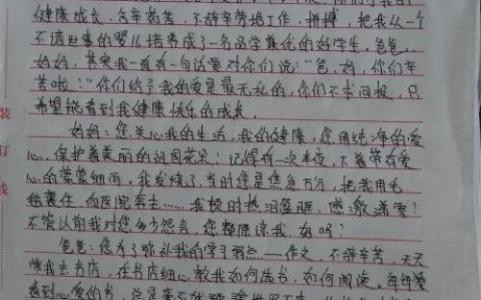 健康成长,含辛茹苦,不辞辛劳地工作,拼搏,把我从一个
不懂世事的婴儿培养成了一名品学兼优的好学生。爸爸、
妈妈,其实我一直有一句话要对你们说:“爸,妈,你们辛
苦啦!”你们给予我的爱是最无私的,你们不求回报,只
希望能看到我健康快乐的成长。
妈妈:您关心我的生活,我的健康,您用纯净的爱
心,保护着美丽的祖国花朵!记得有一次半夜,下着带有爱
心的蒙蒙细雨,我发烧了,当时您是焦急万分,把我用毛
毯裹住向医院奔去……我顿时热泪盈眶,感激
不管以前我对您多少怨言,您都原谅我,好吗?
爸爸:您为了弥补我的学习弱点——作文,不辞辛苦,天天
带我去书店,在书店细心教我如何选书,如何阅读。每每
看到心爱的书,总是
装
订
线